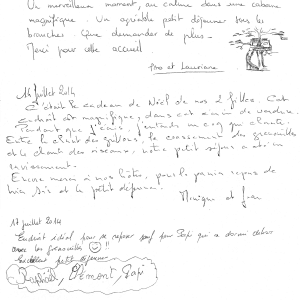 Un merveilleux moment, au calme dans une cabane
magnifique. Un agréable petit déjeuner sous les
branches. Que demander de plus.
Merci pour votre accueil.
et Lauriane
14 juillet 2014
C'était le cadeau de Noël de nos 2 filles. Cet
endroit est magnifique, dans cet de verdure.
Pendant que j'écris, j'entends un coq qui chante.
Entre le chant des, le croassement des grenouilles
et le chant des oiseaux, notre petit séjour a été un
ravissement.
Encore merci à nos hôtes, pour le panier repas de
hier soir et le petit déjeuner.
Monique et
17 juillet 2014
Endroit idéal pour se reposer sauf pour Papi qui a dormi dehors
avec les grenouilles !!
petit déjeuner
Raphaël, Clément, Papi